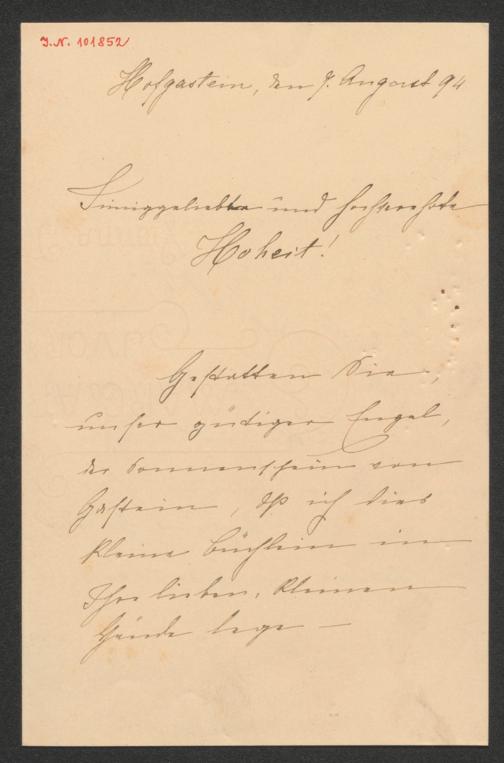 I.N. 101852
Hofgastein, den 7. August 94
Inniggeliebte und hochverehrte
Hoheit!
Gestatten Sie,
unser gütiger Engel,
der Sonnenschein von
Gastein, dß ich dies
kleine Büchlein in
Ihre lieben, kleinen
Hände lege –